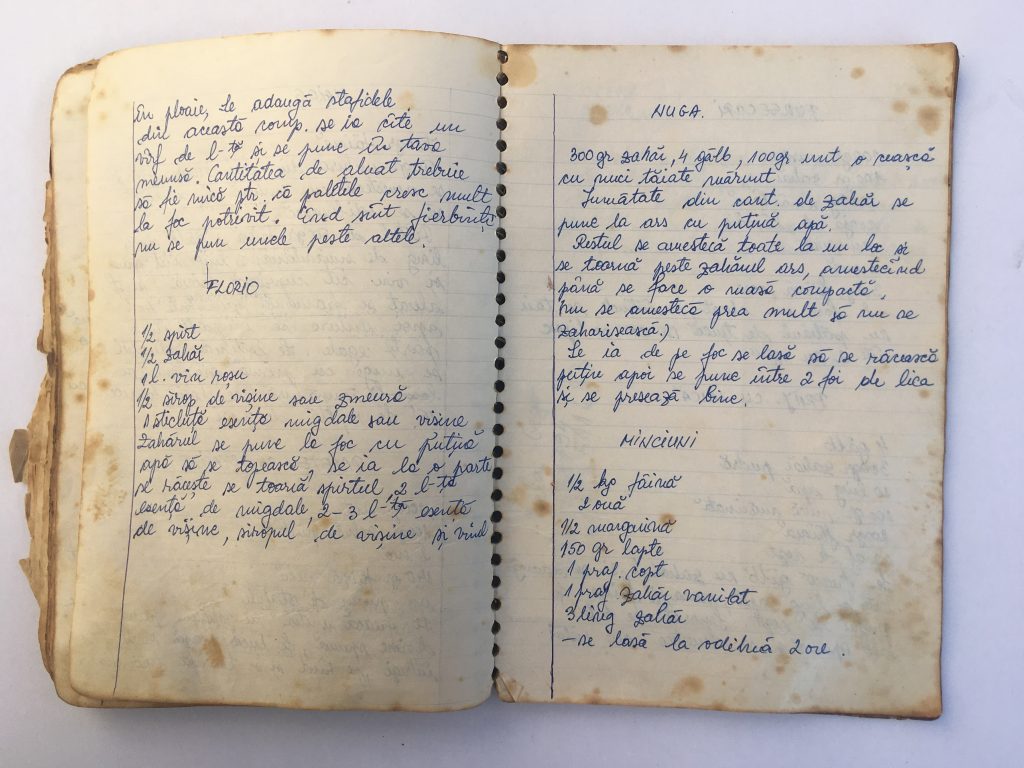 În ploaie, se adaugă stafidele.
din această comp. se ia cîte un
vîrf de l-ță și se pune în tava
neunsă. Cantitatea de aluat trebuie
să fie mică ptr. că paletele cresc mult
la foc potrivit. Cînd sînt fierbinți
nu se pun unele peste altele.
FLORIO
1/2 spirt
1/2 zahăr
1 l. vin roșu
1/2 sirop de vișine sau zmeură
1 sticluță esență migdale sau vișine
Zahărul se pune la foc cu puțină
apă să se topească, se ia la o parte
se răcește se toarnă spirtul, 2 l-țe
esență de migdale, 2-3 l-țe esență
de vișine, siropul de vișine și vinul
NUGA.
300gr zahăr, 4 gălb, 100gr unt o ceașcă
cu nuci tăiate mărunt
Jumătate din cant. de zahăr se
pune la ars cu puțină apă.
Restul se amestecă toate la un loc și
se toarnă peste zahărul ars, amestecînd
până se face o masă compactă.
nu se amestecă prea mult să nu se
zaharisească.)
Se ia de pe foc se lasă să se răcească
puțin apoi se pune între 2 foi de lica
și se presează bine.
MINCIUNI
1/2 kg făină
2 ouă
1/2 margarină
150 gr lapte
1 praf. copt
1 praf zahăr vanilat
3 ling zahăr
- se lasă la odihnă 2 ore.